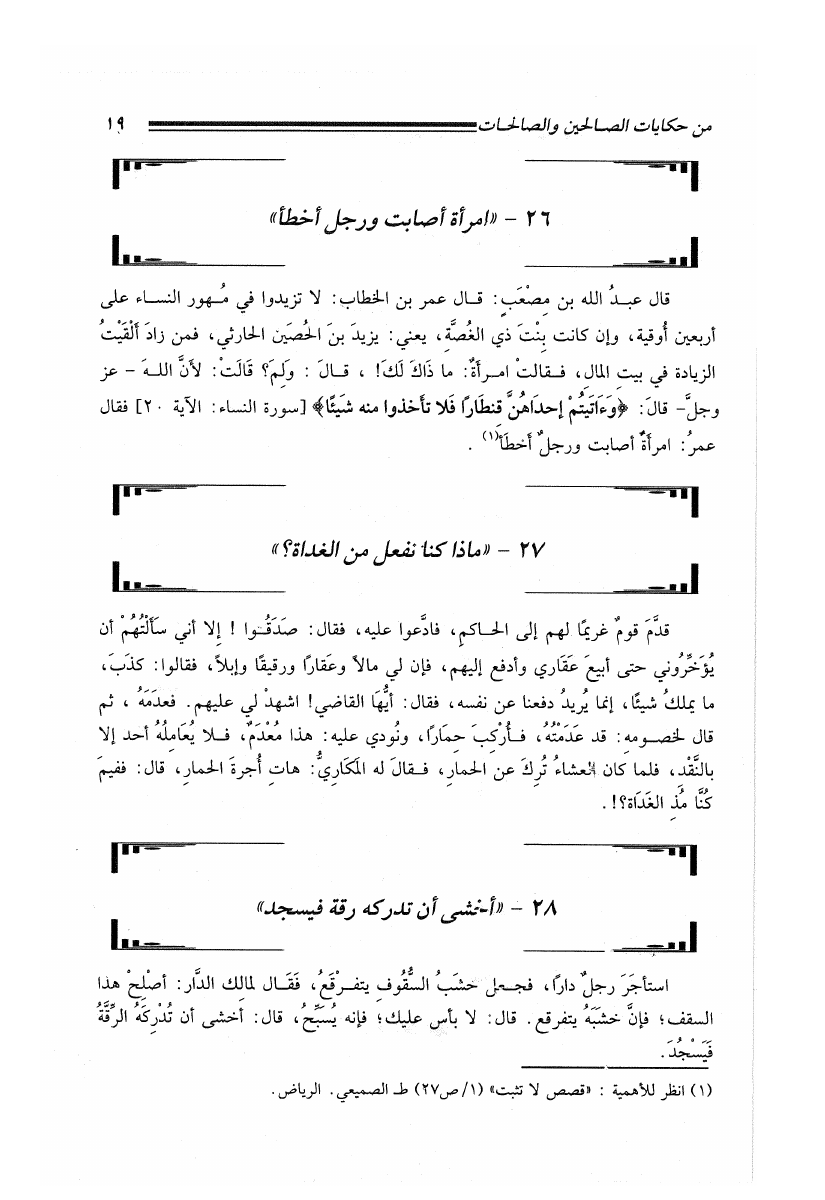 من حكايات الصالحين والصالحات ١٩
٢٦ – «امرأة أصابت ورجل أخطأ»
قال عبدُ الله بن مِصْعَبٍ: قال عمر بن الخطاب: لا تزيدوا في مُهور النساء على
أربعين أُوقية، وإن كانت بِنْتَ ذي الغُصَّة، يعني: يزيدَ بنَ الحُصَين الحارثي، فمن زادَ ألْقَيْتُ
الزيادة في بيت المال، فقالتْ امرأةٌ: ما ذَاكَ لَكَ! ، قالَ : ولِمَ؟ قَالَتْ: لأنَّ اللهَ – عز
وجلَّ– قالَ: ﴿وَءَاتَيتُمْ إحدَاهُنَّ قنطَارًا فَلا تأخذوا منه شَيئًا﴾ [سورة النساء: الآية ٢٠] فقال
عمرُ: امرأةٌ أصابت ورجلٌ أخطَأَ(١) .
٢٧ – «ماذا كنا نفعل من الغداة؟»
قدَّمَ قومٌ غريمًا لهم إلى الحاكمِ، فادَّعوا عليه، فقال: صَدَقُوا ! إلا أني سَألْتُهُمْ أن
يُؤَخِّرُوني حتى أبيعَ عَقَاري وأدفع إليهم، فإن لي مالاً وعَقارًا ورقيقًا وإبلاً، فقالوا: كذَبَ،
ما يملكُ شيئًا، إنما يُريدُ دفعنا عن نفسه، فقال: أيُّهَا القاضي! اشهدْ لي عليهم. فعدَمَهُ ، ثم
قال لخصومه: قد عَدَمْتُهُ، فأُرْكِبَ حِمارًا، ونُودي عليه: هذا مُعْدَمٌ، فلا يُعَامِلُهُ أحد إلا
بالنَّقْد، فلما كان العشاءُ تُرِكَ عن الحمارِ، فقالَ له المكَاريُّ: هاتِ أُجرةَ الحمارِ، قال: ففيمَ
كُنَّا مُذِ الغَدَاة؟! .
٢٨ – «أخشى أن تدركه رقة فيسجد»
استأجَرَ رجلٌ دارًا، فجعل خشَبُ السُّقُوفِ يتفرْقَعُ، فَقَال لمالك الدَّار: أصْلِحْ هذا
السقف؛ فإنَّ خشَبَهُ يتفرقع. قال: لا بأس عليك؛ فإنه يُسَبِّحُ، قال: أخشى أن تُدْرِكَهُ الرِّقَّةُ
فَيَسْجُدَ.
(١) انظر للأهمية : «قصص لا تثبت» (١/ ص٢٧) طـ الصميعي. الرياض.